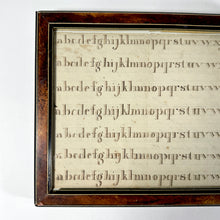 abcdefghijklmnopqrstuv
abcdefghijklmnopqrstuv
abcdefghijklmnopqrstuv
abcdefghijklmnopqrstuv
abcdefghijklmnopqrstuv
abcdefghijklmnopqrstuv
abcdefghijklmnopqrstuv